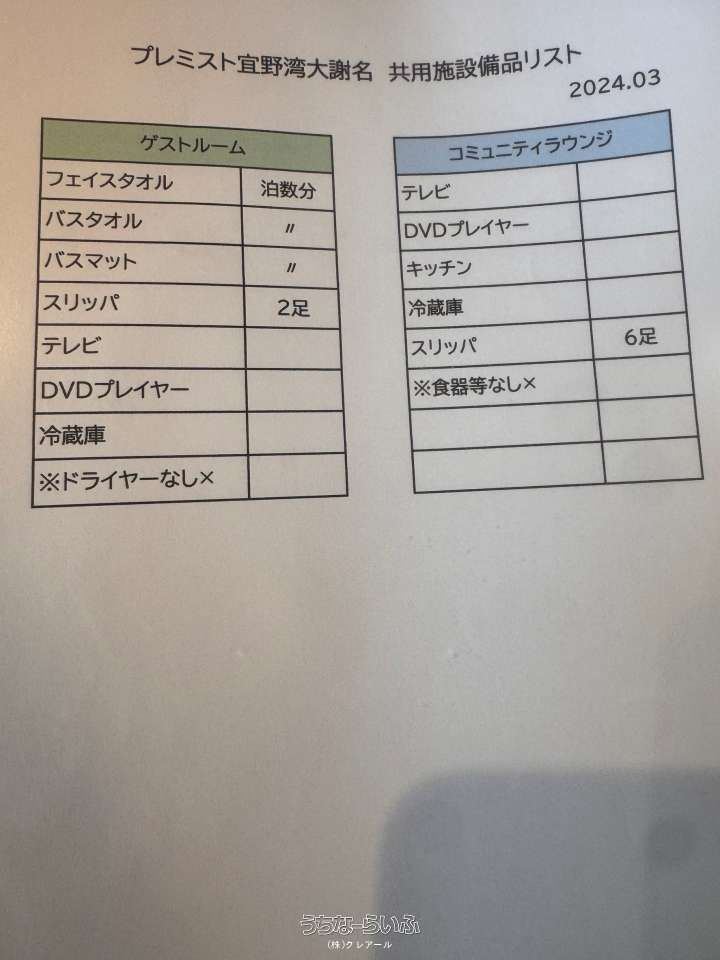 プレミスト宜野湾大謝名 共用施設備品リスト
2024.03
ゲストルーム
フェイスタオル 泊数分
バスタオル 〃
バスマット 〃
スリッパ 2足
テレビ
DVDプレイヤー
冷蔵庫
※ドライヤーなし×
コミュニティラウンジ
テレビ
DVDプレイヤー
キッチン
冷蔵庫
スリッパ 6足
※食器等なし×
うちなーらいふ
(株)クレアール